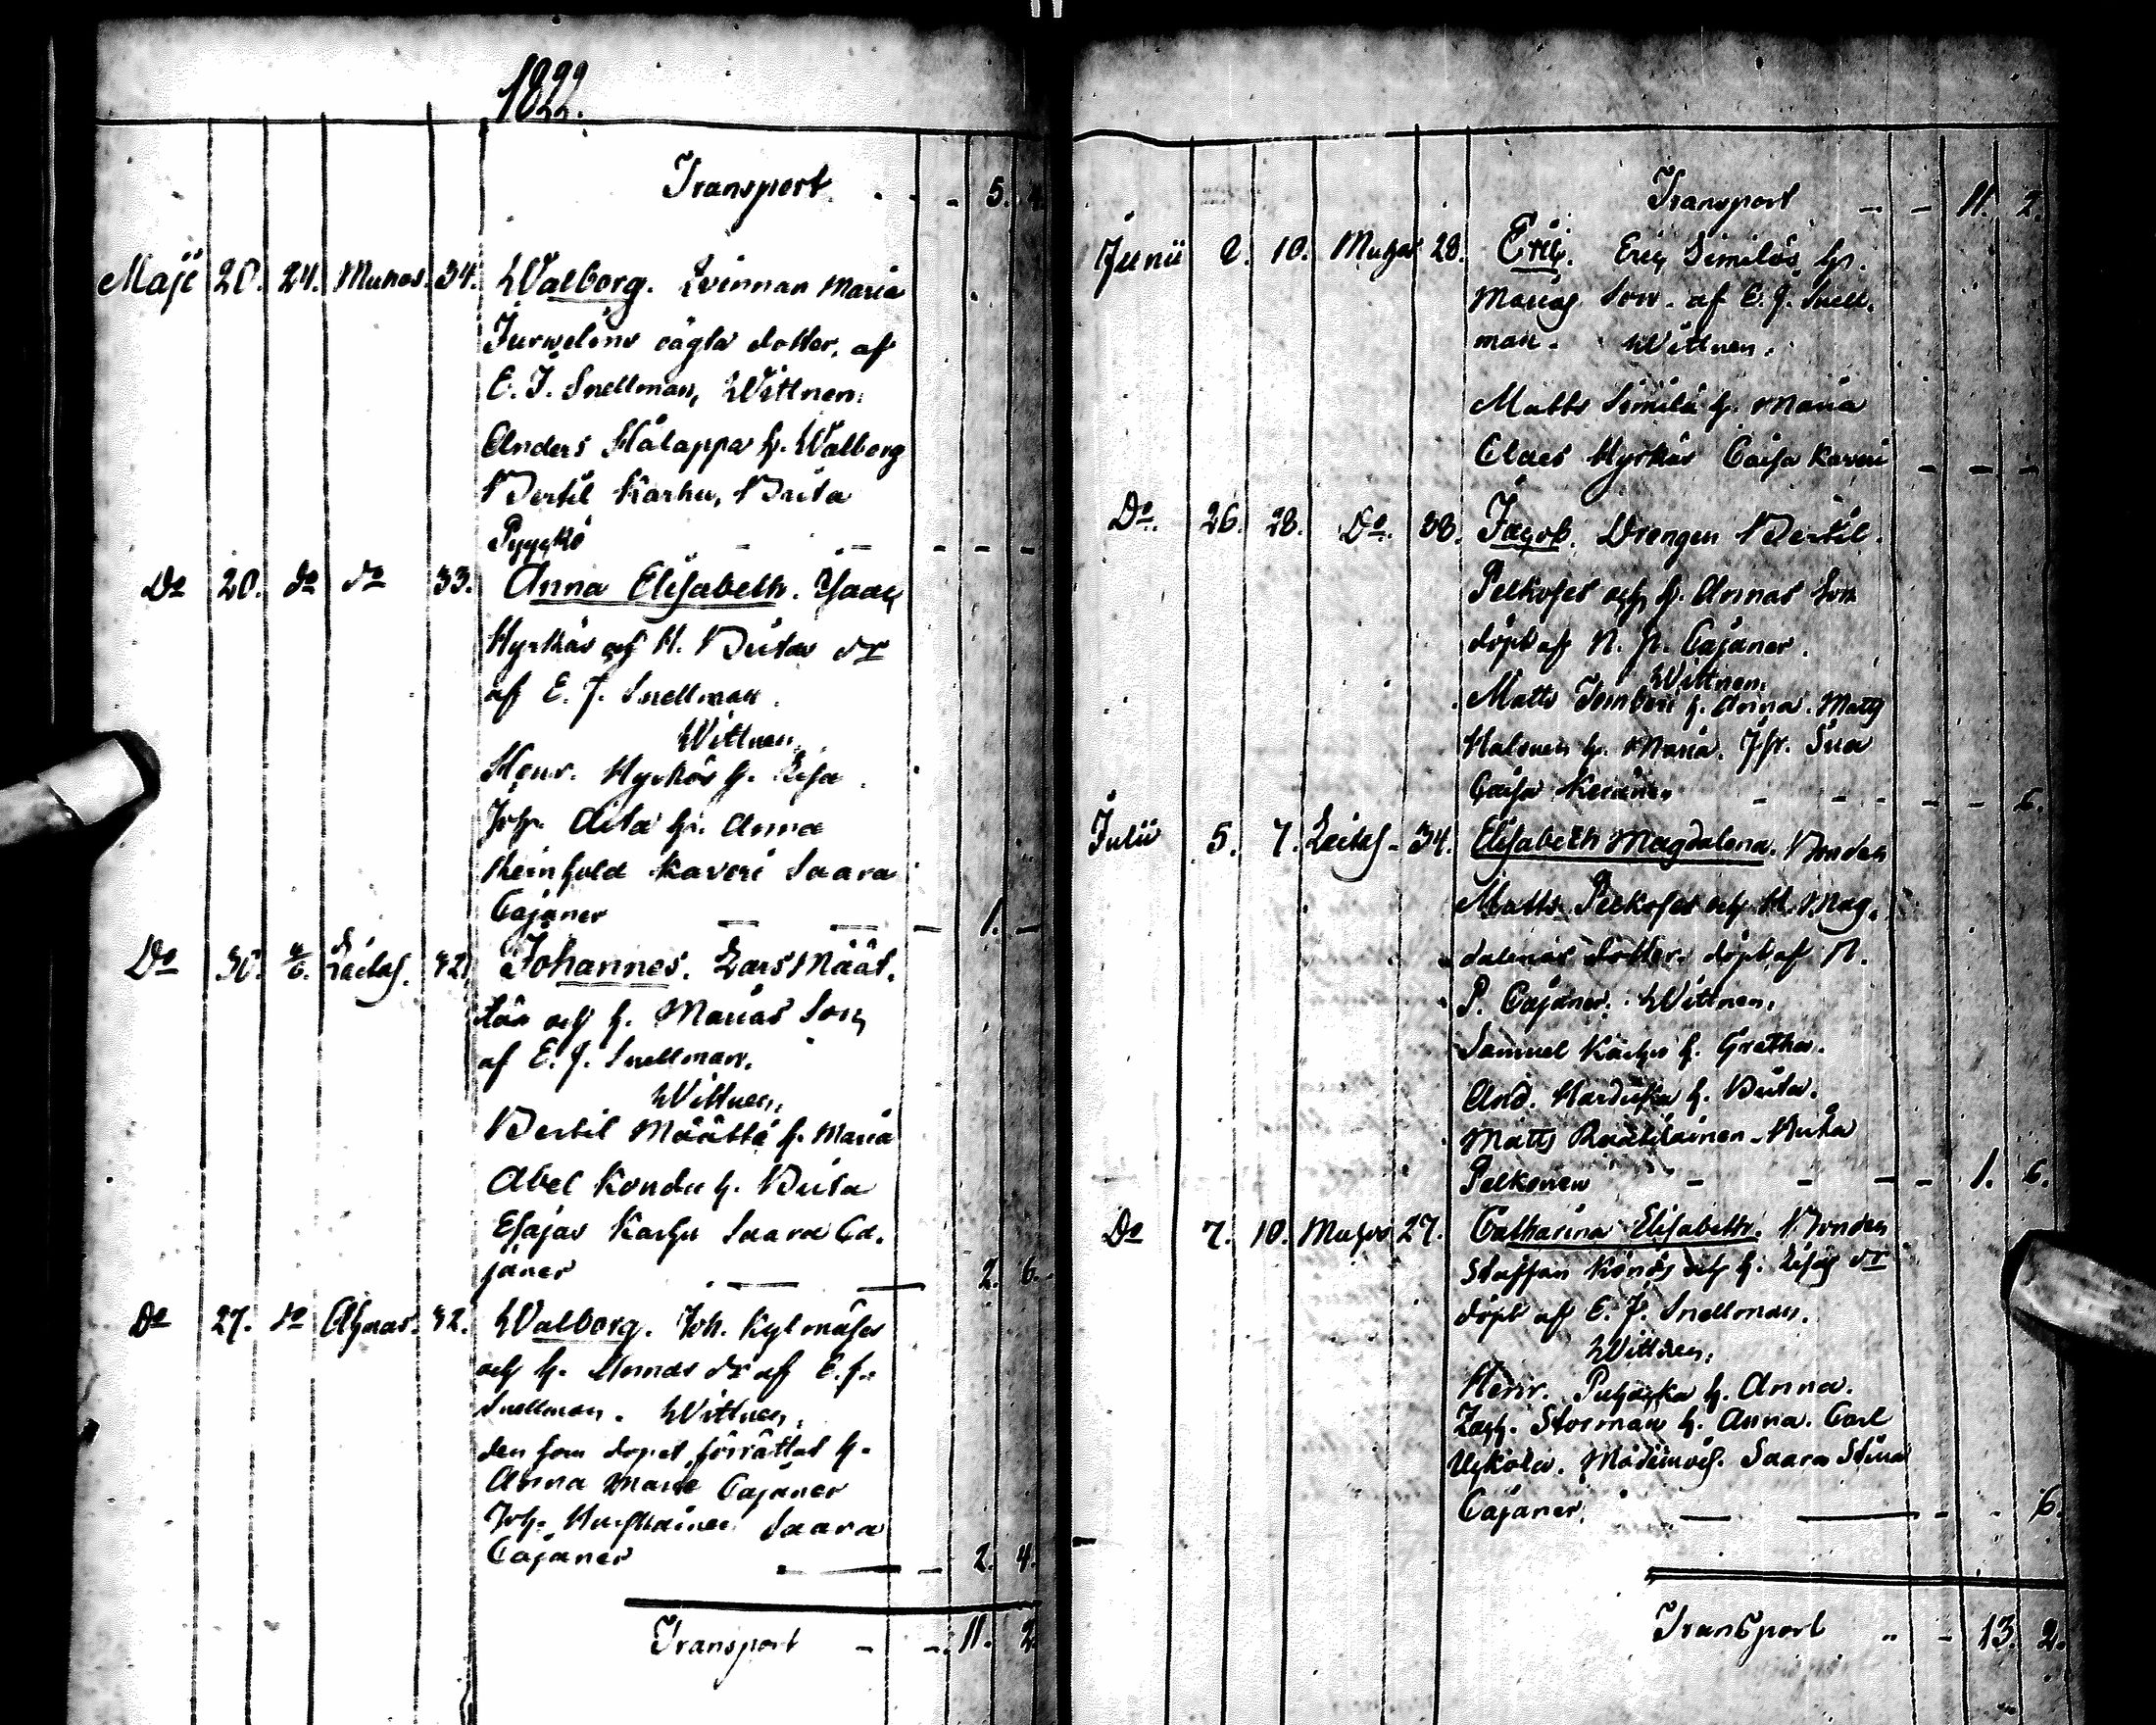 1822.
Transport - 5. 4.
Maji 20. 24. Muhos. 34. Walborg. Qvinnan Maria
Jurvelins oägta dotter, af
E. J. Snellman, Wittnen:
Anders Halappa h. Walborg
Bertil Karhu, Brita
Pyykkö - - - - -
Do 20. do do 33. Anna Elisabeth. Isaac
Hyrkäs och H. Britas dr
af E. J. Snellman.
Wittnen,
Henr. Hyrkäs h. Lisa.
Joh. Aita h. Anna
Reinhold Kaveri Saara
Cajaner - - - 1. -
Do 30. Laitas. 32. Johannes. Lars Määt-
täs och h. Marias Son,
af E. J. Snellman.
Wittnen,
Bertil Määttä h. Maria
Abel Kondu h. Brita
Esajas Karhu Saara Ca-
janer - - 2. 6.
Do 27. do Ahmas. 32. Walborg. Joh. Kylmäses
och h. Annas dr af E. J.
Snellman. Wittnen,
den som dopet förrättat h.
Anna Maria Cajaner
Joh. Saara
Cajaner - - - 2. 4.
Transport - - 11. 2.
Transport - - 11. 2.
Junii 2. 10. Muhos 28. Eric. Eric Similäs h.
Marias Son. af E. J. Snell-
man. Wittnen,
Matts Similä h. Maria
Claes Hyrkäs Caisa Kaveri - - -
Do. 26. 28. Do. 38. Jacob. Drengen Bertil
Pelkoses och h. Annas Son
döpt af N. P. Cajaner.
Wittnen,
Matts h. Anna. Matts
Halonen h. Maria. Joh.
Caisa Keränen - - - - - 6.
Julii 5. 7. Laitas - 34. Elisabeth Magdalena. Bonden
Matts Pelkoses och H. Mag-
dalenas dotter. döpt af N.
P. Cajaner. Wittnen,
Samuel Karhu h. Gretha.
And. h. Brita.
Matts Raatikainen. Brita
Pelkonen - - - - 1. 6.
Do 7. 10. Muhos 27. Catharina Elisabeth. Bonden
Staffan Könös och h. Lisas dr
döpt af E. J. Snellman.
Wittnen,
Henr. Puhakka h. Anna.
Zach. Storman h. Anna. Carl
Saara Stina
Cajaner. - - - - 6.
Transport - 13. 2.